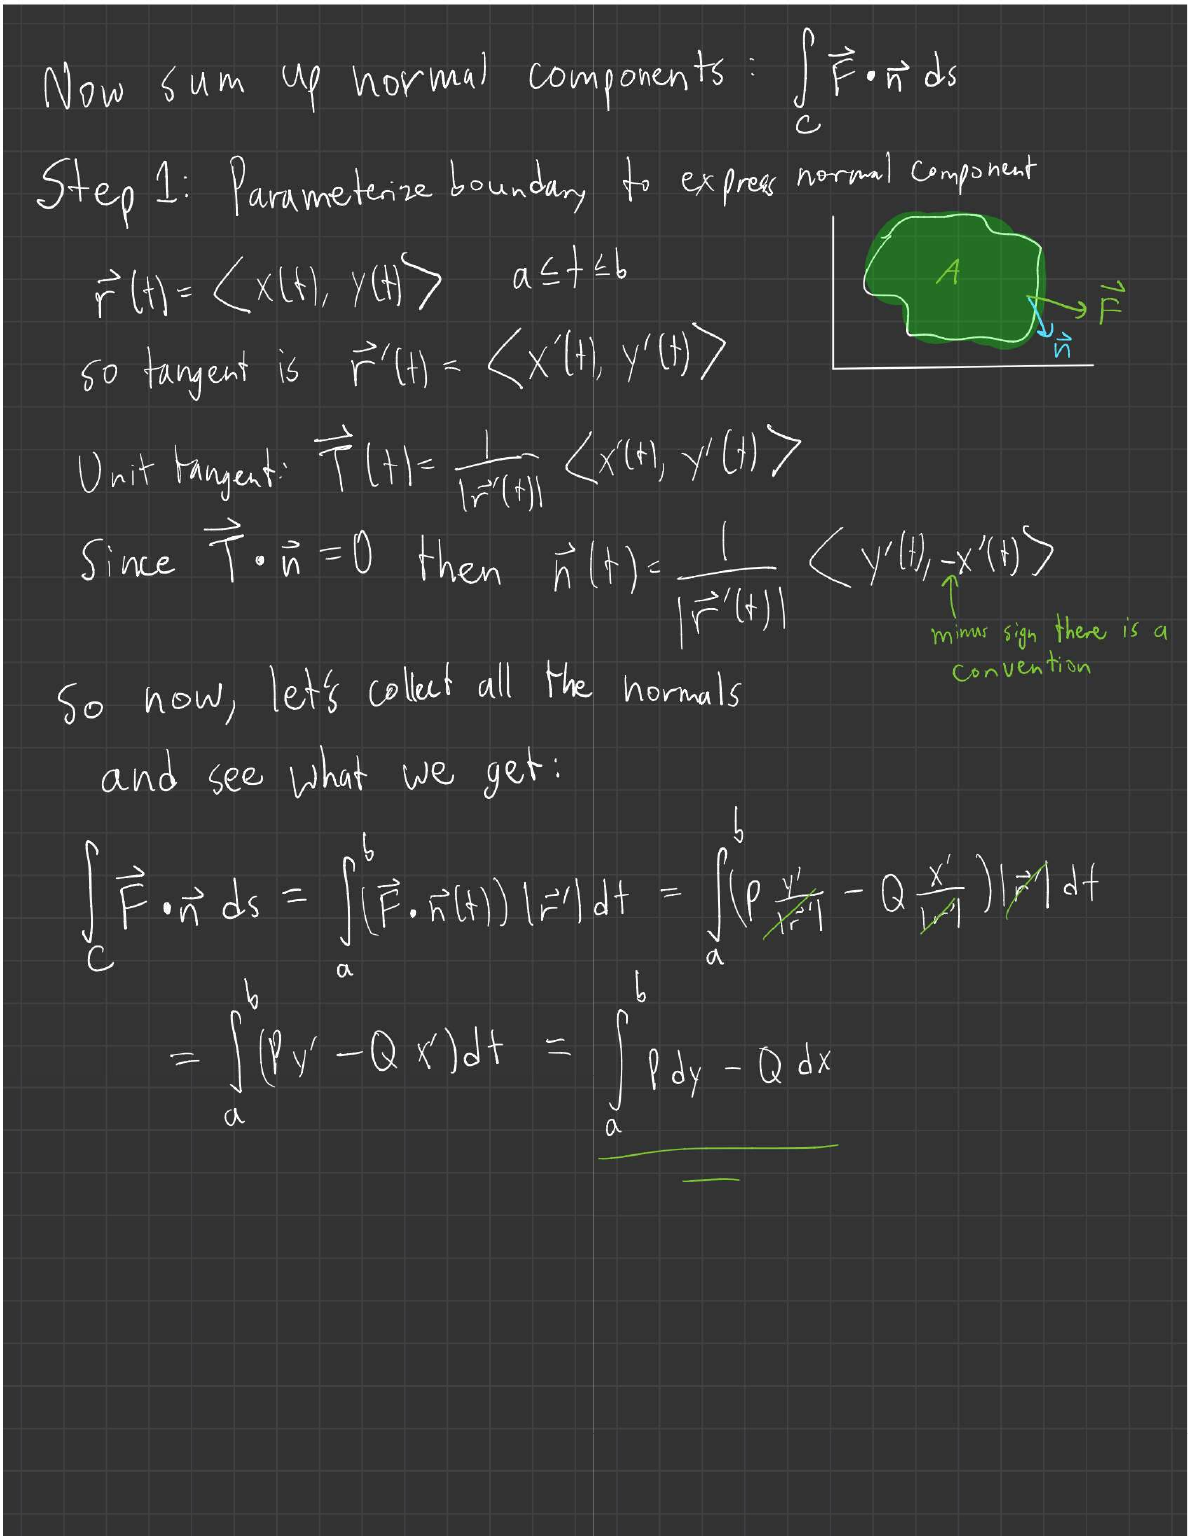 Now sum up normal components: ∫_C F⃗ • n⃗ ds
Step 1: Parameterize boundary to express normal component
A
F⃗
n⃗
r⃗(t) = <x(t), y(t)> a ≤ t ≤ b
so tangent is r⃗'(t) = <x'(t), y'(t)>
Unit tangent: T⃗(t) = 1/|r⃗'(t)| <x'(t), y'(t)>
Since T⃗ • n⃗ = 0 then n⃗(t) = 1/|r⃗'(t)| <y'(t), -x'(t)>
minus sign there is a
convention
So now, let's collect all the normals
and see what we get:
∫_C F⃗ • n⃗ ds = ∫_a^b (F⃗ • n⃗(t)) |r⃗'| dt = ∫_a^b (P y'/|r⃗'| - Q x'/|r⃗'|) |r⃗'| dt
= ∫_a^b (P y' - Q x') dt = ∫_a^b P dy - Q dx